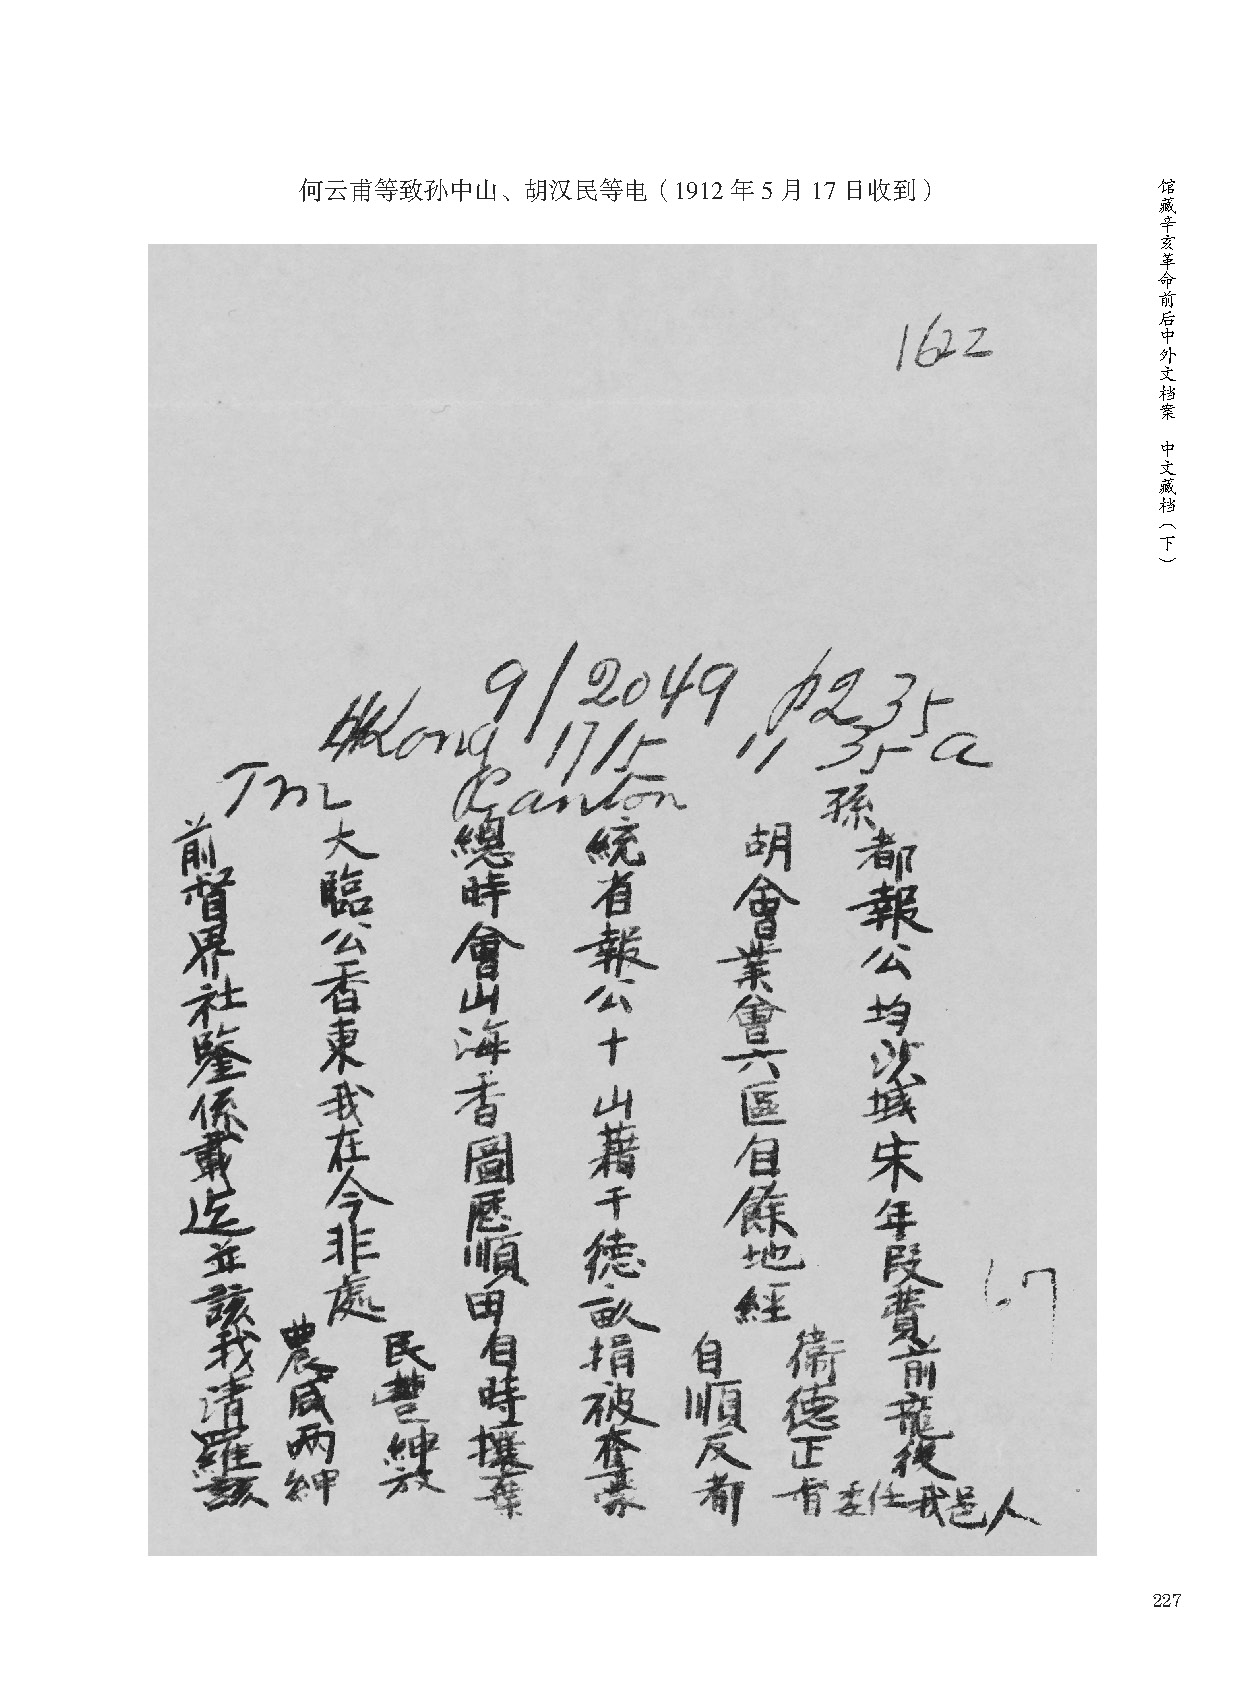 何云甫等致孙中山、胡汉民等电（1912年5月17日收到）
馆藏辛亥革命前后中外文档案 中文藏档（下）
1622
9/2049 p2 35
HKong 17/5 11 35 a
Tml Canton
前大總統胡孫都
督臨時省會報
界公會報業公
社香山公會均
鑒東海十六沙
係我香山區域
載在圖藉自宋
迄今歷千餘年
並非順德地段
該處田畝經費
我農民自捐自衛前
清咸豐時被順德龍
羅兩紳攘奪反正後
該紳放棄豪都省委任我邑人
227